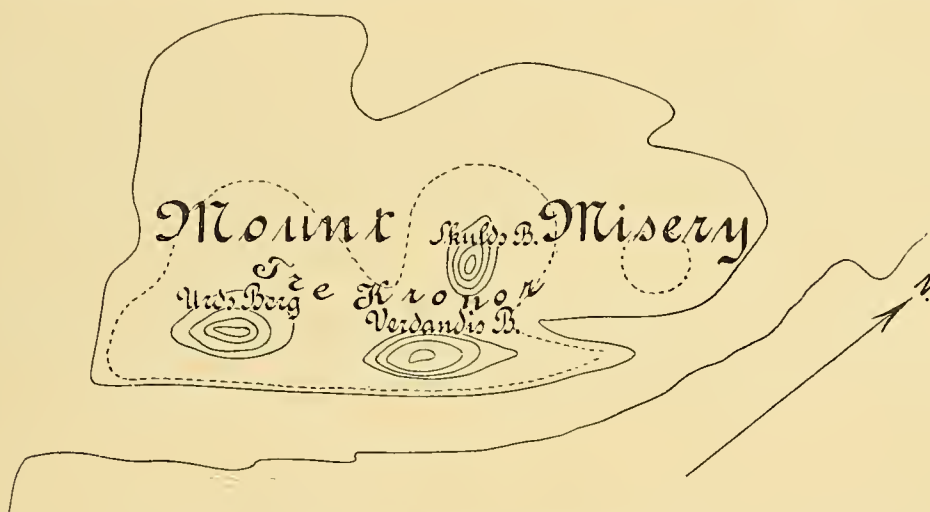 Mount Misery
Skulds B.
Tre Kronor
Urds Berg
Verdandis B.
N.